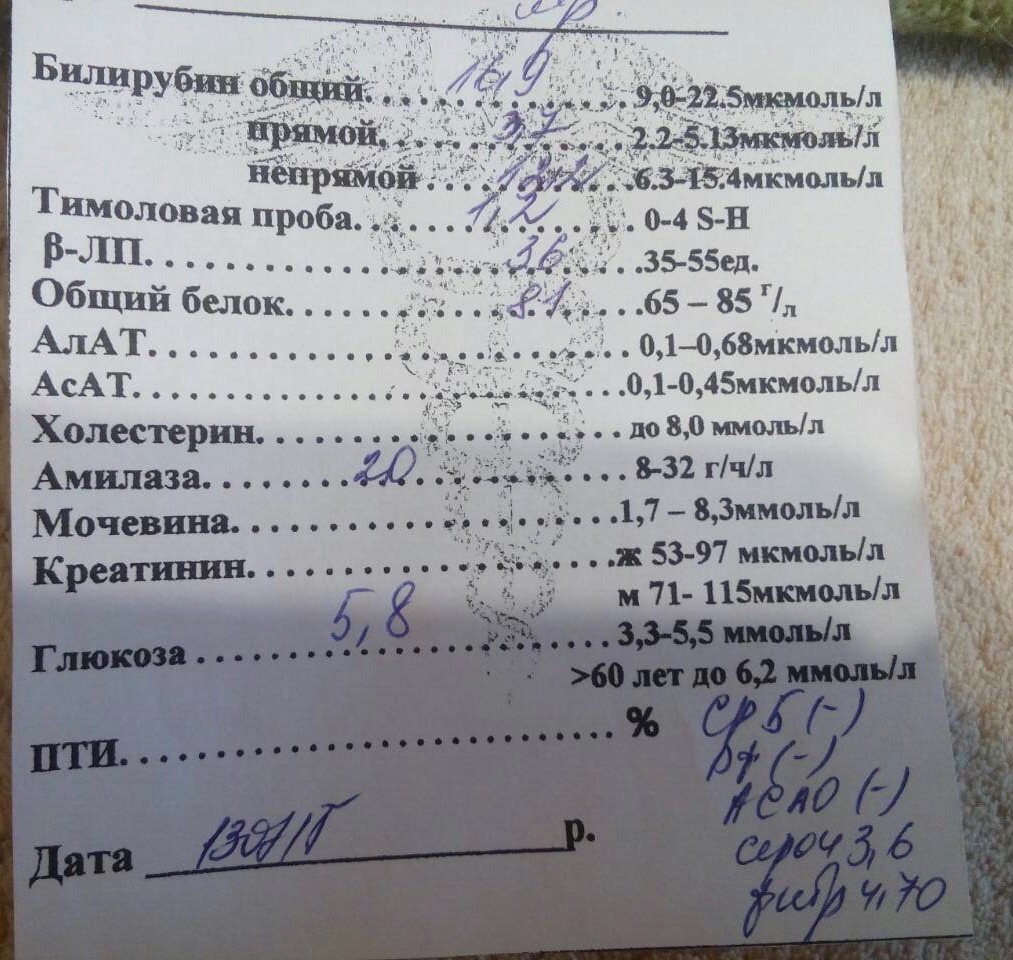 Билирубин общий. . . 16,9 . . . 9,0-22.5мкмоль/л
прямой. . . 3,7 . . . 2.2-5.13мкмоль/л
непрямой . . . 13.2 . . . 6.3-15.4мкмоль/л
Тимоловая проба. . . 1,2 . . . 0-4 S-H
β-ЛП. . . 36 . . . 35-55ед.
Общий белок. . . 81 . . . 65 – 85 г/л
АлАТ. . . 0,1–0,68мкмоль/л
АсАТ. . . 0,1-0,45мкмоль/л
Холестерин. . . до 8,0 ммоль/л
Амилаза. . . 20 . . . 8-32 г/ч/л
Мочевина. . . 1,7 – 8,3ммоль/л
Креатинин. . . ж 53-97 мкмоль/л
м 71- 115мкмоль/л
Глюкоза . . . 5,8 . . . 3,3-5,5 ммоль/л
>60 лет до 6,2 ммоль/л
ПТИ. . . %
СРБ (-)
(-)
АСЛО (-)
3,6
4,70
Дата р.